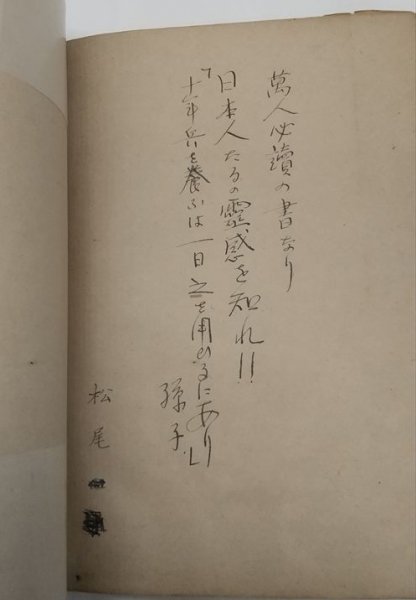 萬人必讀の書なり
日本人たるの靈感を知れ!!
「十年兵を養ふは一日之を用ひるにあり」
孫子
松尾